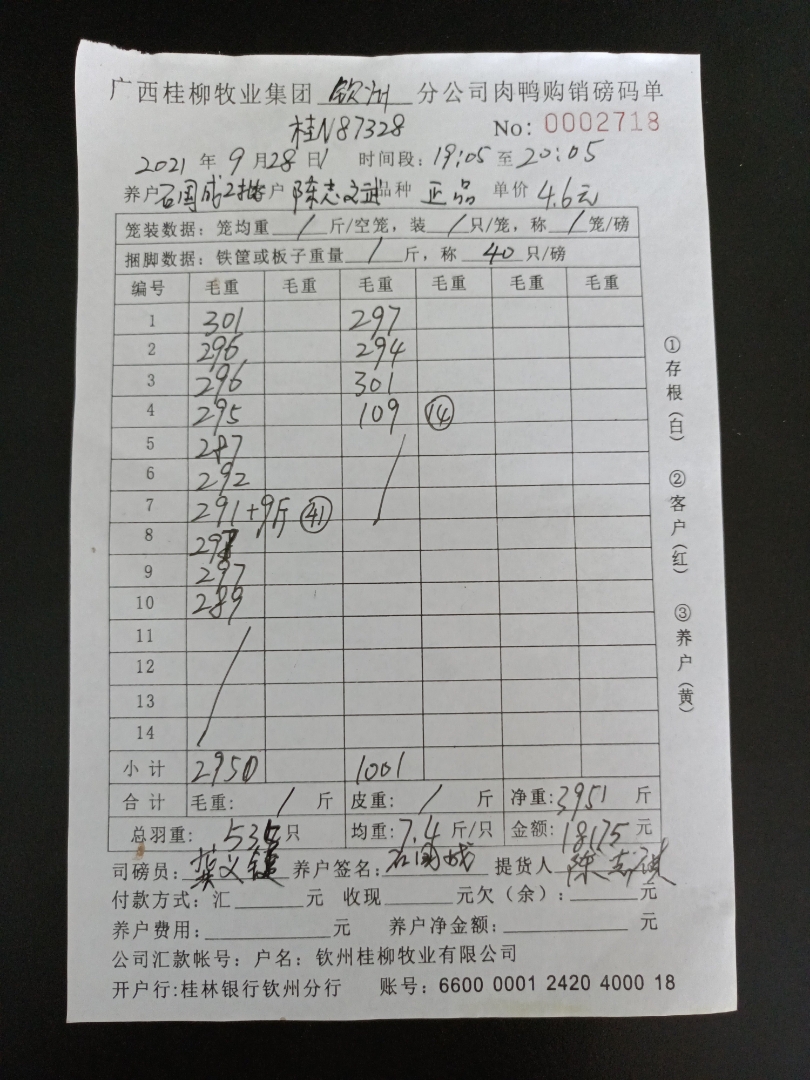 广西桂柳牧业集团 钦州 分公司肉鸭购销磅码单
桂N87328 No: 0002718
2021 年 9 月 28 日 时间段: 19:05 至 20:05
养户 石国成2批 客户 陈志文武 品种 正品 单价 4.6元
笼装数据: 笼均重 / 斤/空笼, 装 / 只/笼, 称 / 笼/磅
捆脚数据: 铁筐或板子重量 / 斤, 称 40 只/磅
编号 毛重 毛重 毛重 毛重 毛重 毛重
1 301 297
2 296 294
3 296 301
4 295 109 ⑭
5 287 /
6 292
7 291+9斤 ㊶
8 297
9 297
10 289
11 /
12
13
14
小计 2950 1001
合计 毛重: / 斤 皮重: / 斤 净重: 3951 斤
总羽重: 535 只 均重: 7.4 斤/只 金额: 18175 元
司磅员: 养户签名: 石国成 提货人
付款方式: 汇 元 收现 元欠(余): 元
养户费用: 元 养户净金额: 元
公司汇款帐号: 户名: 钦州桂柳牧业有限公司
开户行:桂林银行钦州分行 账号: 6600 0001 2420 4000 18
①存根(白) ②客户(红) ③养户(黄)